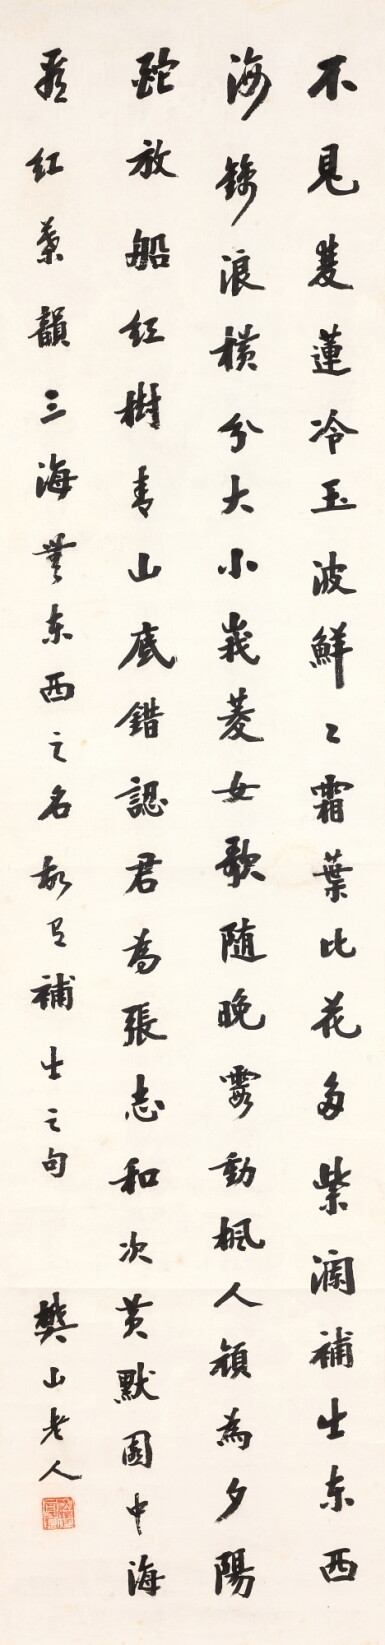 不見蓮冷玉波鮮〻霜葉比花多紫瀾補出東西
海錦浪橫分大小峩菱女歌随晚霞動楓人頳為夕陽
酡放船紅樹青山底錯認君為張志和次黄默園中海
看紅葉韻三海無東西之名故有補出之句 樊山老人